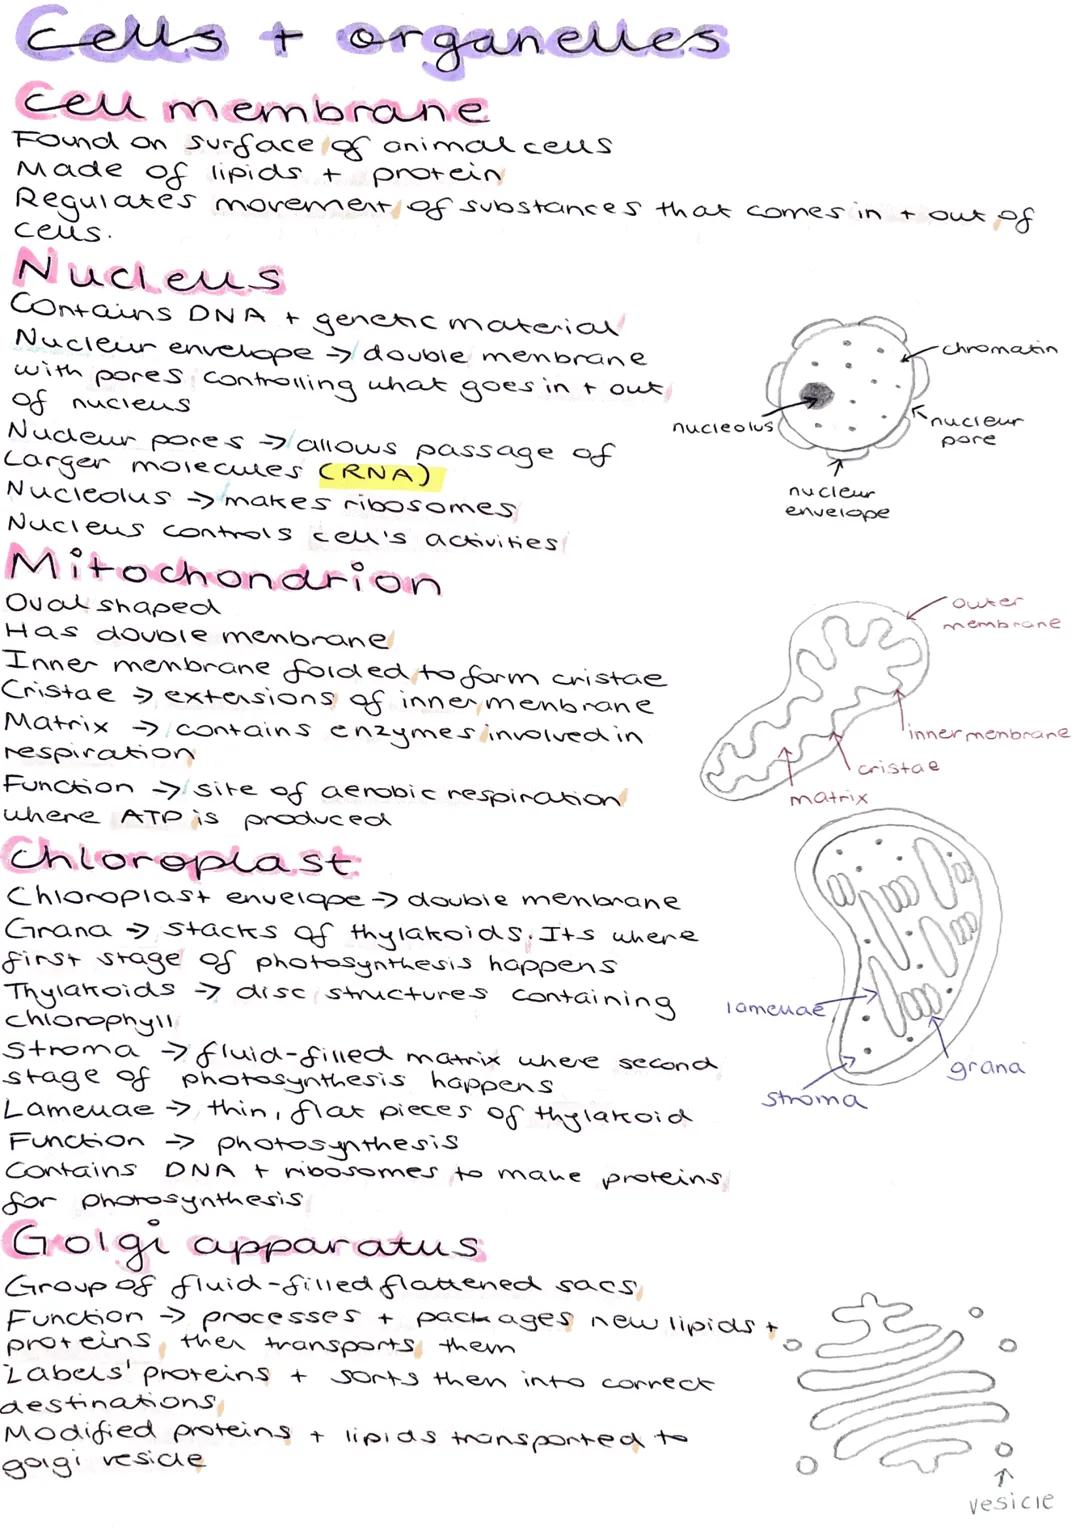 Cells + organelles
Cell membrane
Found on surface of animal cells
Made of lipids + protein
Regulates movement of substances that comes in + out of
cells.
Nucleus
Contains DNA + genetic material
Nucleur envelope → double menbrane
with pores controlling what goes in + out
of nucleus
Nucleur pores → allows passage of
Larger molecules (RNA)
Nucleolus → makes ribosomes
Nucleus controls cell's activities
chromatin
nucleolus
nucleur
pore
nucleur
envelope
Mitochondrion
Oval shaped
Has double menbrane
Inner membrane folded to form cristae
Cristae → extensions of inner menbrane
Matrix → contains enzymes involved in
respiration
Function → site of aerobic respiration
where ATP is produced
outer
membrane
inner menbrane
cristae
matrix
Chloroplast
Chloroplast envelope → double menbrane
Grana → stacks of thylakoids. Its where
first stage of photosynthesis happens
Thylakoids → disc structures containing
chlorophyll
Stroma → fluid-filled matrix where second
stage of photosynthesis happens
Lamellae → thin, flat pieces of thylakoid
Function → photosynthesis
Contains DNA + ribosomes to make proteins
for photosynthesis
lamellae
grana
stroma
Golgi apparatus
Group of fluid-filled flattened sacs
Function → processes + packages new lipids +
proteins, then transports them
'Labels' proteins + sorts then into correct
destinations
Modified proteins + lipids transported to
golgi vesicle
vesicle